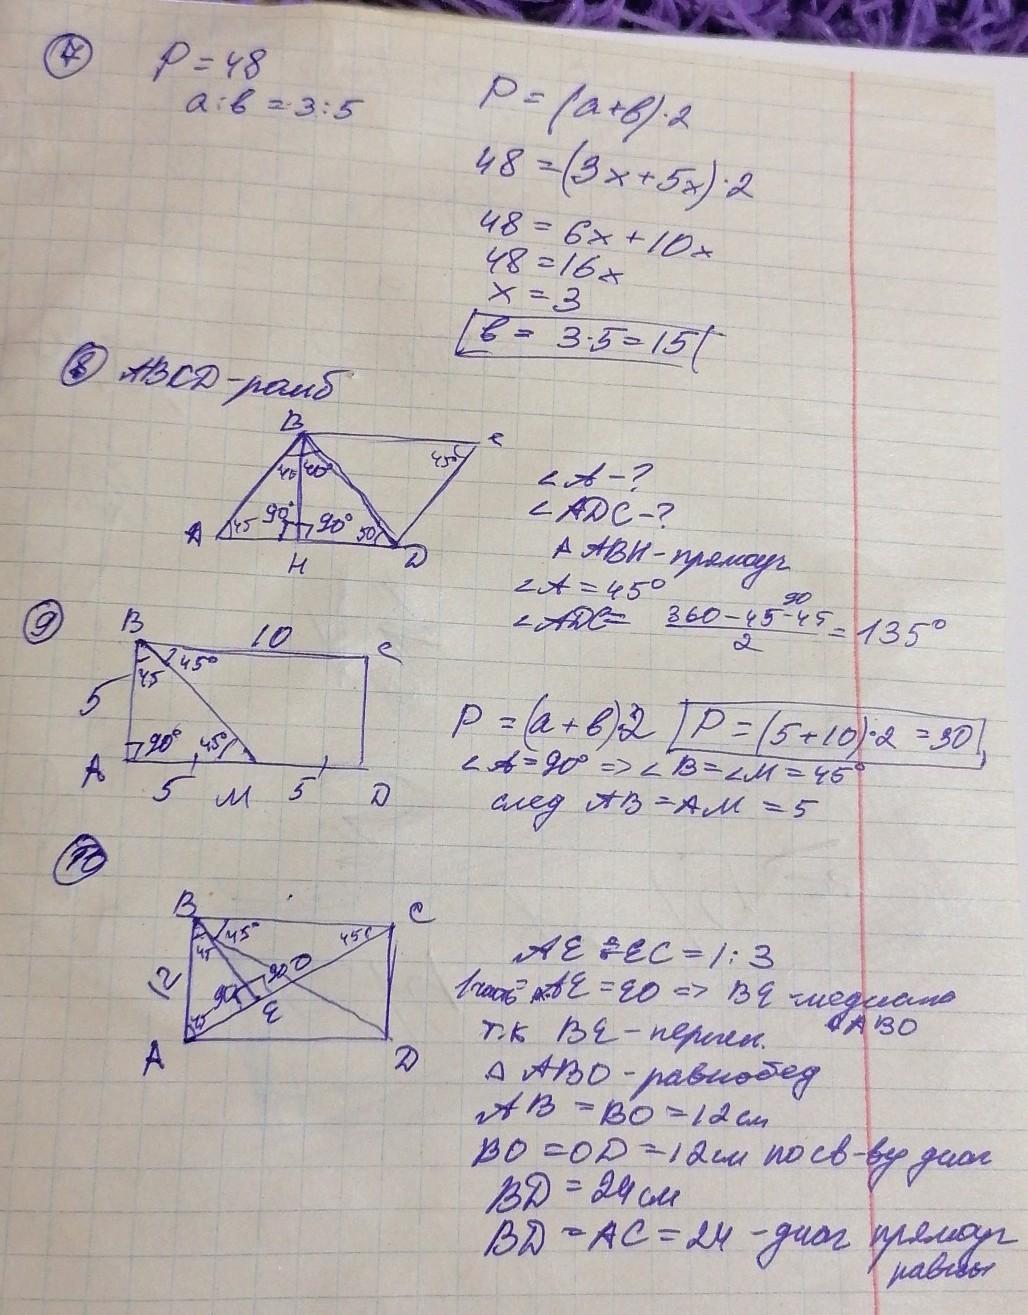 7
P = 48
a:в = 3:5
P = (a+в)·2
48 = (3x+5x)·2
48 = 6x + 10x
48 = 16x
x = 3
в = 3·5 = 15
8 ABCD - ромб
B
C
45 40°
45°
A
45 90° 90° 50
H
D
∠A - ?
∠ADC - ?
Δ ABH - прямоуг
∠A = 45°
90
∠ADC = (360 - 45 - 45)/2 = 135°
9
B
10
C
45 45°
5
90° 45°
A
5 M 5 D
P = (a+в)·2 P = (5+10)·2 = 30
∠A = 90° => ∠B = ∠M = 45°
след AB = AM = 5
10
B
C
45 45° 45
12
90 90 O
45
E
A
D
AE : EC = 1 : 3
AE = EO => BE - медиана
ABO
т.к BE - перпен.
Δ ABO - равнобед
AB = BO = 12 см
BO = OD = 12 см по св-ву диаг
BD = 24 см
BD = AC = 24 - диаг прямоуг
равны